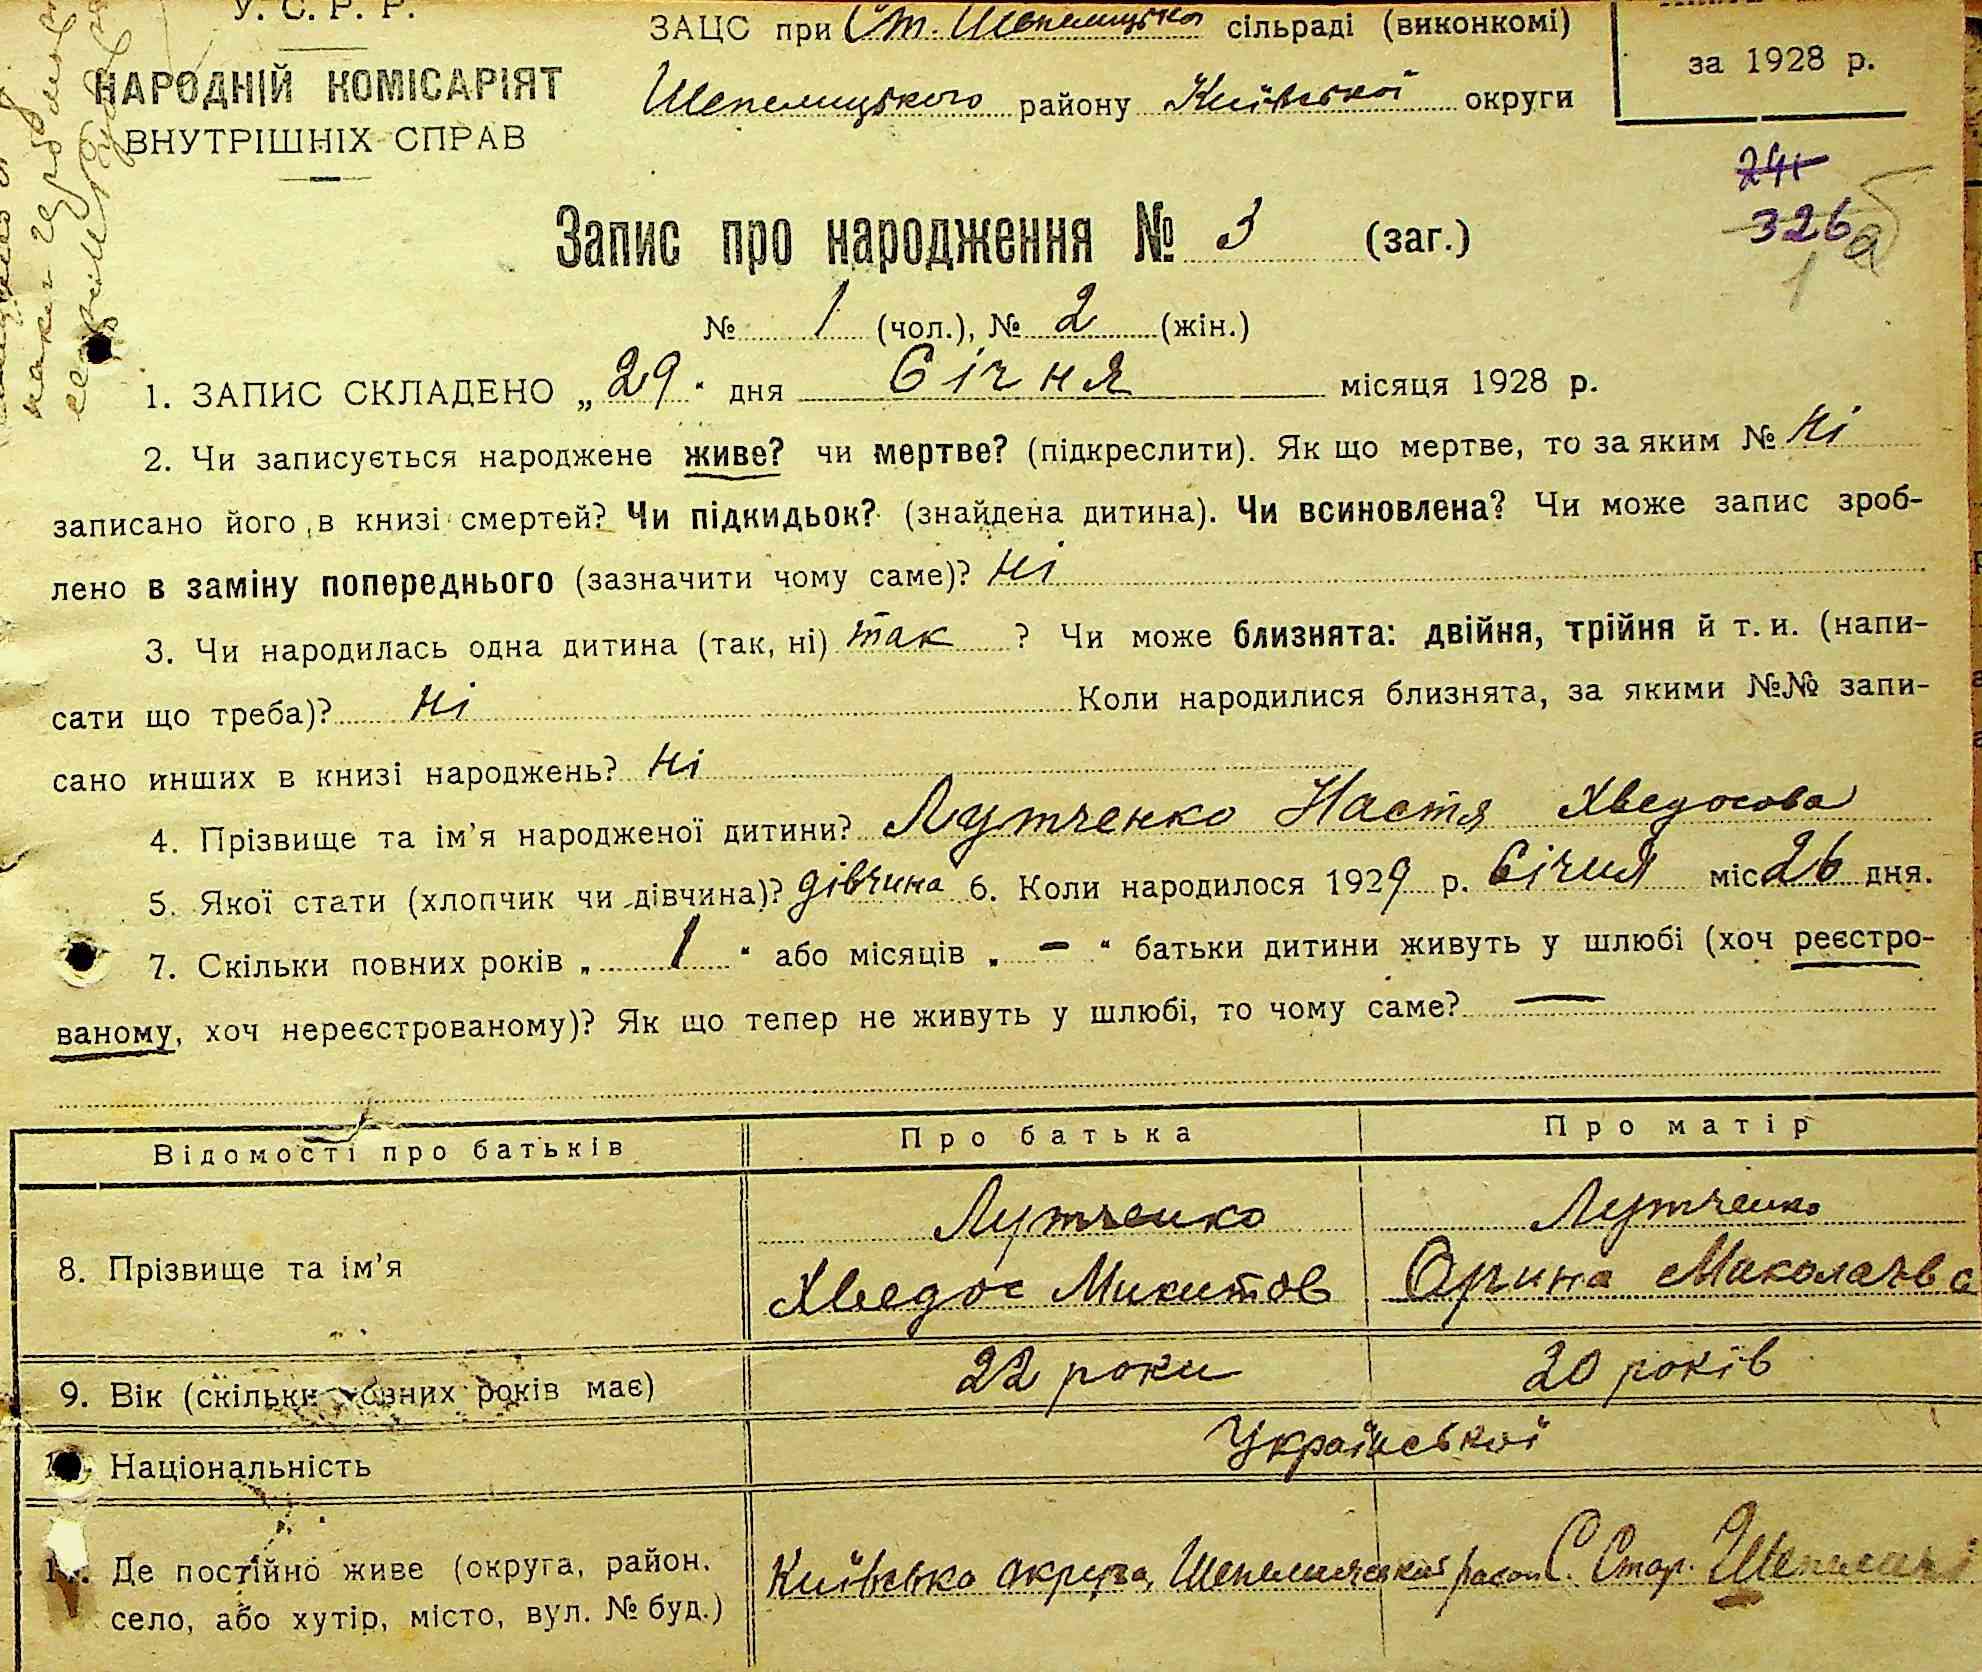 У. С. Р. Р.
НАРОДНІЙ КОМІСАРІЯТ
ВНУТРІШНІХ СПРАВ
ЗАЦС при Ст. Шепелицькой сільраді (виконкомі)
Шепелицького району Київської округи
за 1928 р.
241
326
1
Запис про народження № 3 (заг.)
№ 1 (чол.), № 2 (жін.)
1. ЗАПИС СКЛАДЕНО „29“ дня Січня місяця 1928 р.
2. Чи записується народжене живе? чи мертве? (підкреслити). Як що мертве, то за яким № Ні
записано його в книзі смертей? Чи підкидьок? (знайдена дитина). Чи всиновлена? Чи може запис зроб-
лено в заміну попереднього (зазначити чому саме)? Ні
3. Чи народилась одна дитина (так, ні) так ? Чи може близнята: двійня, трійня й т. и. (напи-
сати що треба)? Ні Коли народилися близнята, за якими №№ запи-
сано инших в книзі народжень? Ні
4. Прізвище та ім’я народженої дитини? Лутченко Настя Хведосова
5. Якої стати (хлопчик чи дівчина)? дівчина 6. Коли народилося 1929 р. Січня міс. 26 дня.
7. Скільки повних років „ 1 “ або місяців „ – “ батьки дитини живуть у шлюбі (хоч реєстро-
ваному, хоч нереєстрованому)? Як що тепер не живуть у шлюбі, то чому саме? —
Відомості про батьків Про батька Про матір
8. Прізвище та ім’я Лутченко Хведос Микитов Лутченко Орина Миколаєва
9. Вік (скільки повних років має) 22 роки 20 років
Національність Української
Де постійно живе (округа, район, село, або хутір, місто, вул. № буд.) Київська округа, Шепелицький район С. Стар. Шепеличі